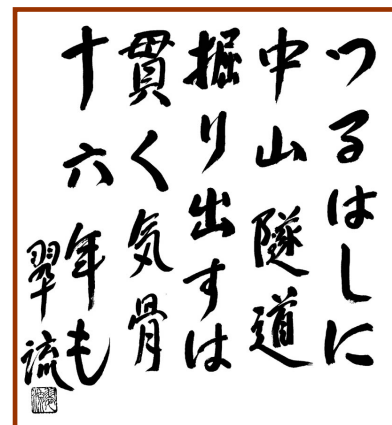 つるはしに
中山隧道
掘り出すは
貫く気骨
十六年も
翠流